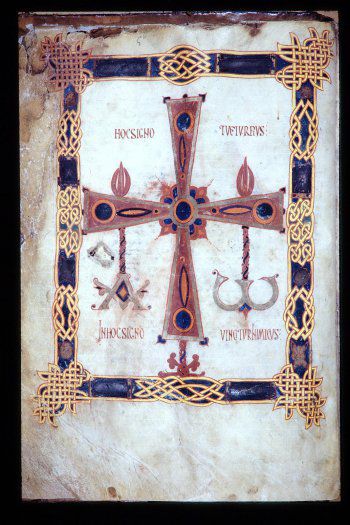 HOCSIGNO TUETURPIUS:
INHOCSIGNO VINCITURINIMICUS